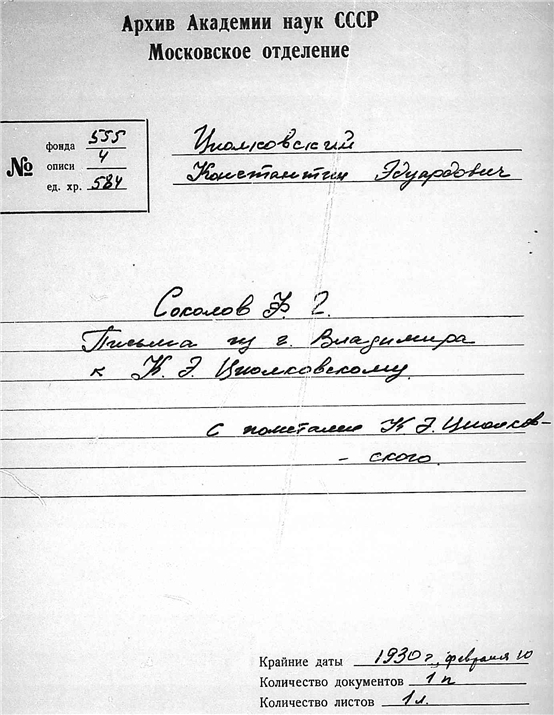 Архив Академии наук СССР
Московское отделение
№
фонда 555
описи 4
ед. хр. 584
Циолковский
Константин Эдуардович
Соколов Ф. Г.
Письма из г. Владимира
к К. Э. Циолковскому.
С пометами К. Э. Циолков-
- ского.
Крайние даты 1930 г., февраля 10
Количество документов 1 п
Количество листов 1 л.